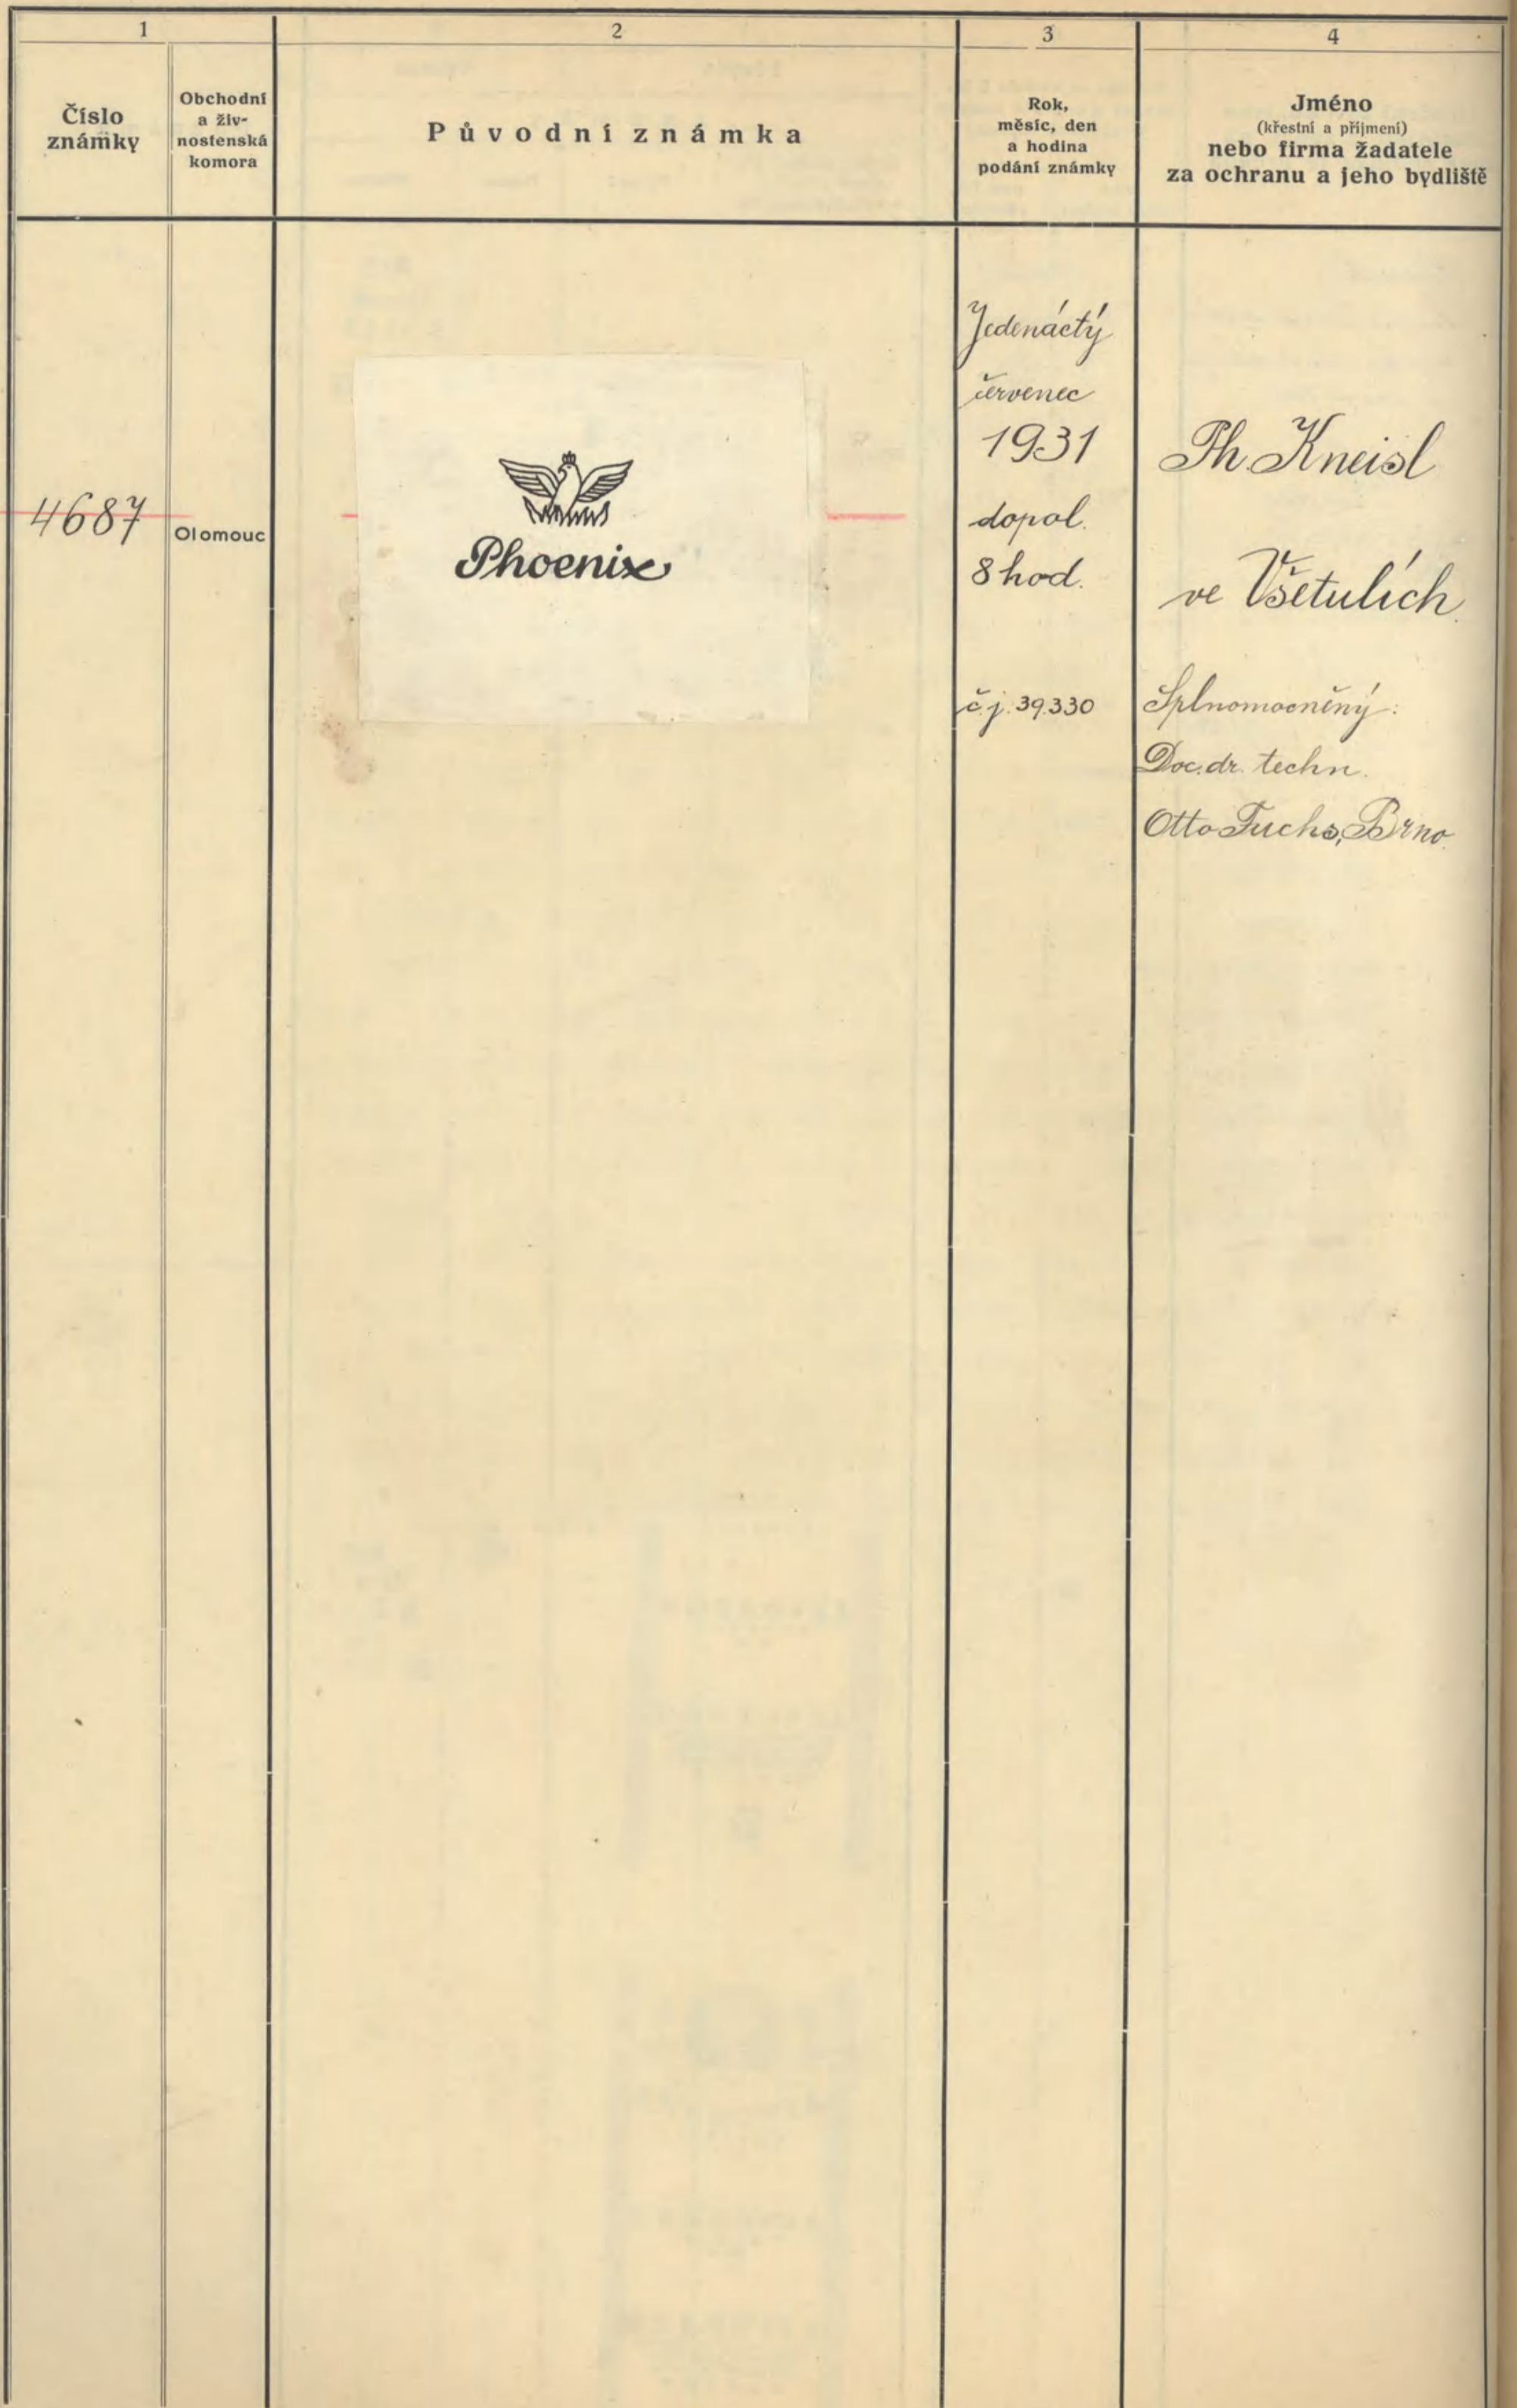 1
2
3
4
Číslo
známky
Obchodní
a živ-
nostenská
komora
Původní známka
Rok,
měsíc, den
a hodina
podání známky
Jméno
(křestní a příjmení)
nebo firma žadatele
za ochranu a jeho bydliště
4687
Olomouc
Phoenix
Jedenáctý
červenec
1931
dopol.
8 hod.
č.j. 39.330
Ph. Kneisl
ve Všetulích.
Splnomocněný:
Doc. dr. techn.
Otto Fuchs, Brno.